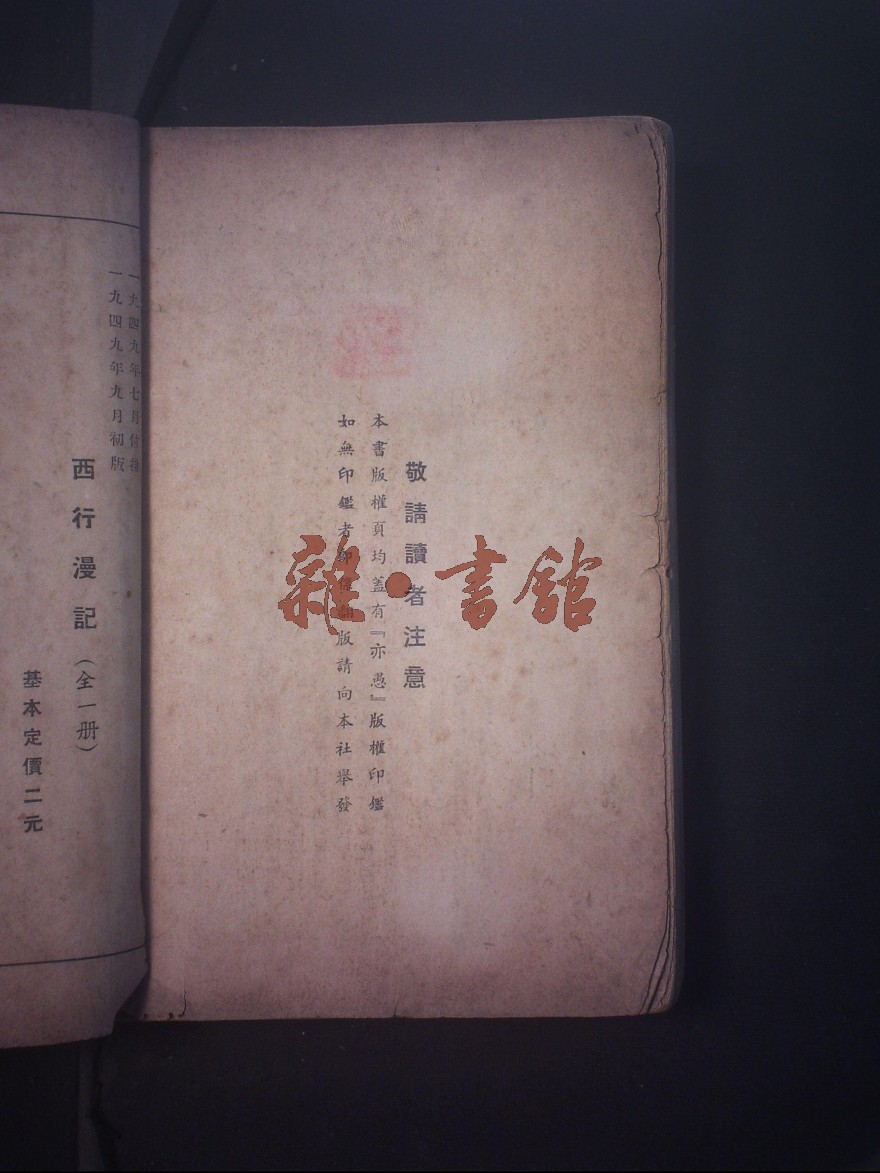 敬請讀者注意
本書版權頁均蓋有『亦愚』版權印鑑
如無印鑑者即係翻版請向本社舉發
雜·書館
一九四九年七月付排
一九四九年九月初版
西行漫記（全一册）
基本定價二元